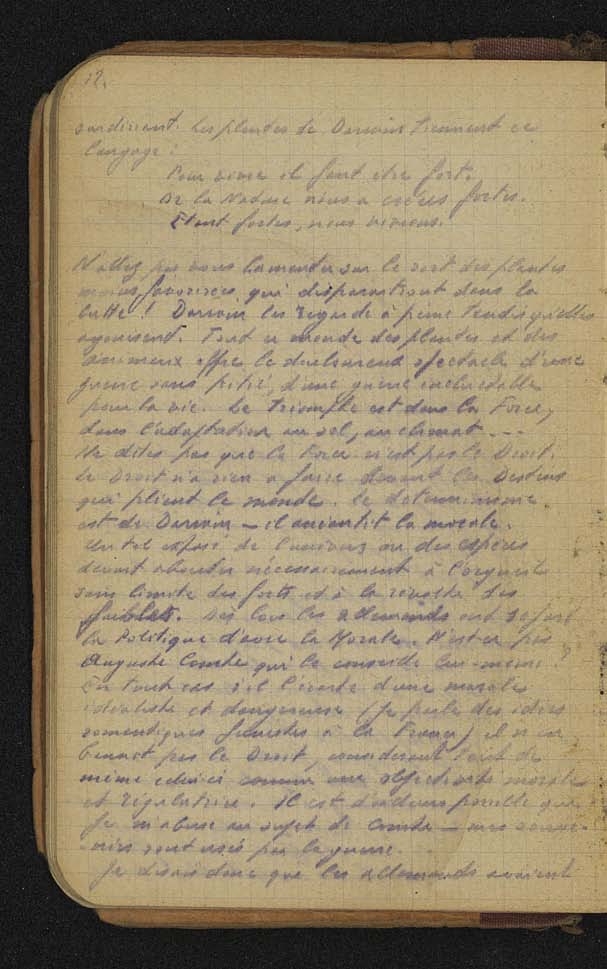 12.
Les plantes de Darwin tiennent ce
langage :
Pour vivre il faut être fort.
Or la Nature nous a créées fortes.
Etant fortes, nous vivrons.
N'allez pas vous lamenter sur le sort des plantes
moins favorisées qui disparaitront dans la
lutte ! Darwin les regarde à peine tandis qu'elles
agonisent. Tout ce monde des plantes et des
animaux offre le douloureux spectacle d'une
guerre sans pitié, d'une guerre inéluctable
pour la vie. Le triomphe est dans la Force,
dans l'adaptation au sol, au climat ...
Ne dites pas que la Force n'est pas le Droit.
Le Droit n'a rien à faire devant les Destins
qui plient le monde. Le déterminisme
est de Darwin — il anéantit la morale.
Un tel exposé de l'univers ou des espèces
devait aboutir nécessairement à l'orgueil
sans limite des forts et à la révolte des
faibles. Dès lors les allemands ont
la Politique d'avec la Morale. N'est-ce pas
Auguste Comte qui le conseille lui-même ?
En tout cas s'il l'écarte d'une morale
idéaliste et dangereuse (je parle des idées
romantiques funestes à la France) il n'en
pas le Droit, considérant
même celui-ci comme une objectivité morale
et régulatrice. Il est d'ailleurs possible que
je m'abuse au sujet de Comte — mes souve-
-nirs sont usés par la guerre.
Je disais donc que les allemands avaient